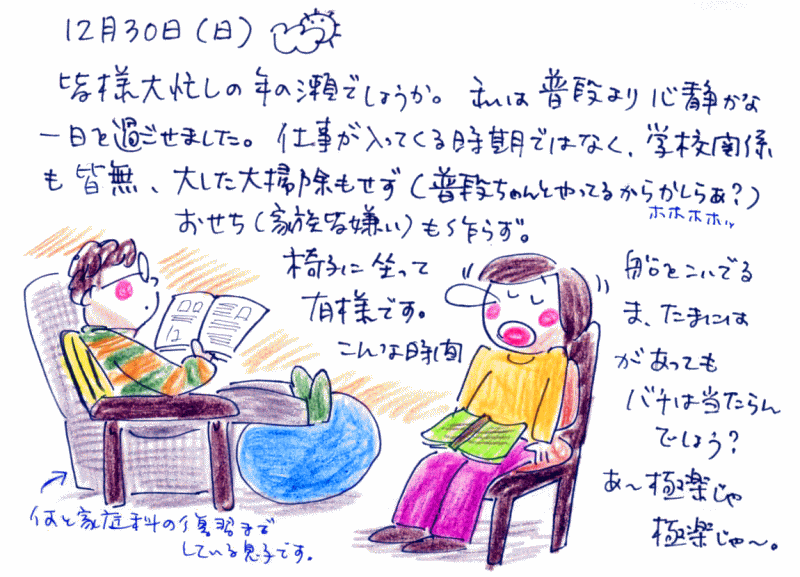 12月30日(日)
皆様大忙しの年の瀬でしょうか。私は普段より心静かな
一日を過ごせました。仕事が入ってくる時期ではなく、学校関係
も皆無、大した大掃除もせず(普段ちゃんとやってるからかしらぁ?)
ホホホホッ
おせち(家族皆嫌い)も作らず。
椅子に坐って
船をこいでる
有様です。
ま、たまには
こんな時間
があっても
バチは当たらん
でしょう?
あ〜極楽じゃ
極楽じゃ〜。
何と家庭科の復習まで
している息子です。